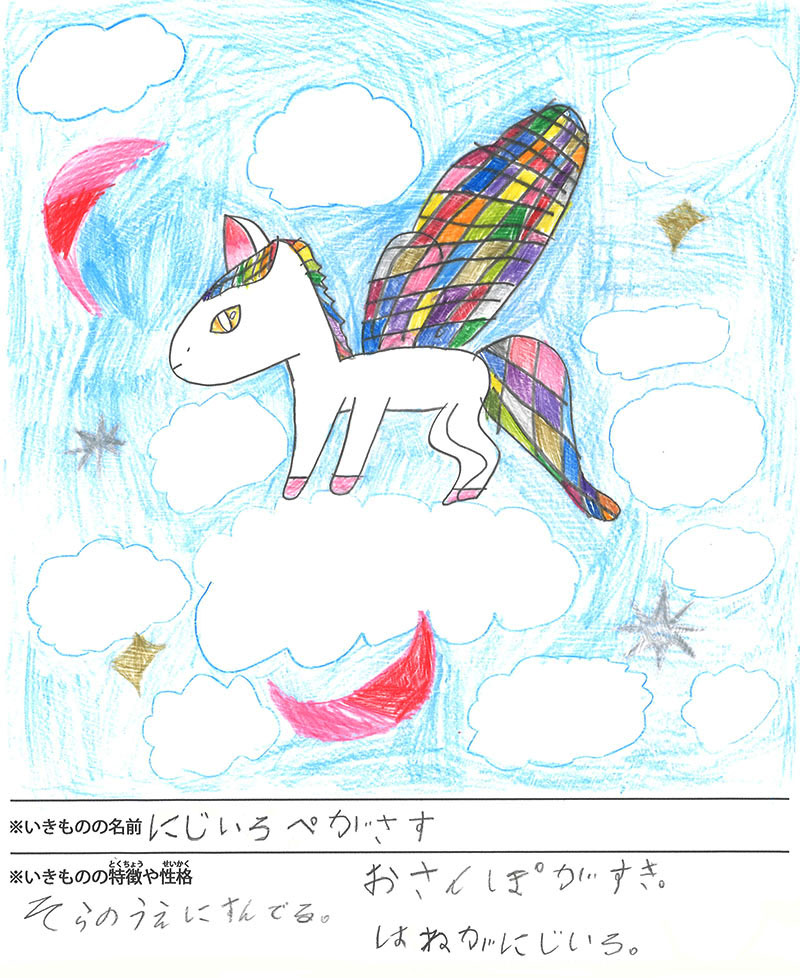 ※いきものの名前 にじいろぺがさす
※いきものの特徴や性格
とくちょう せいかく
おさんぽがすき。
そらのうえにすんでる。
はねがにじいろ。